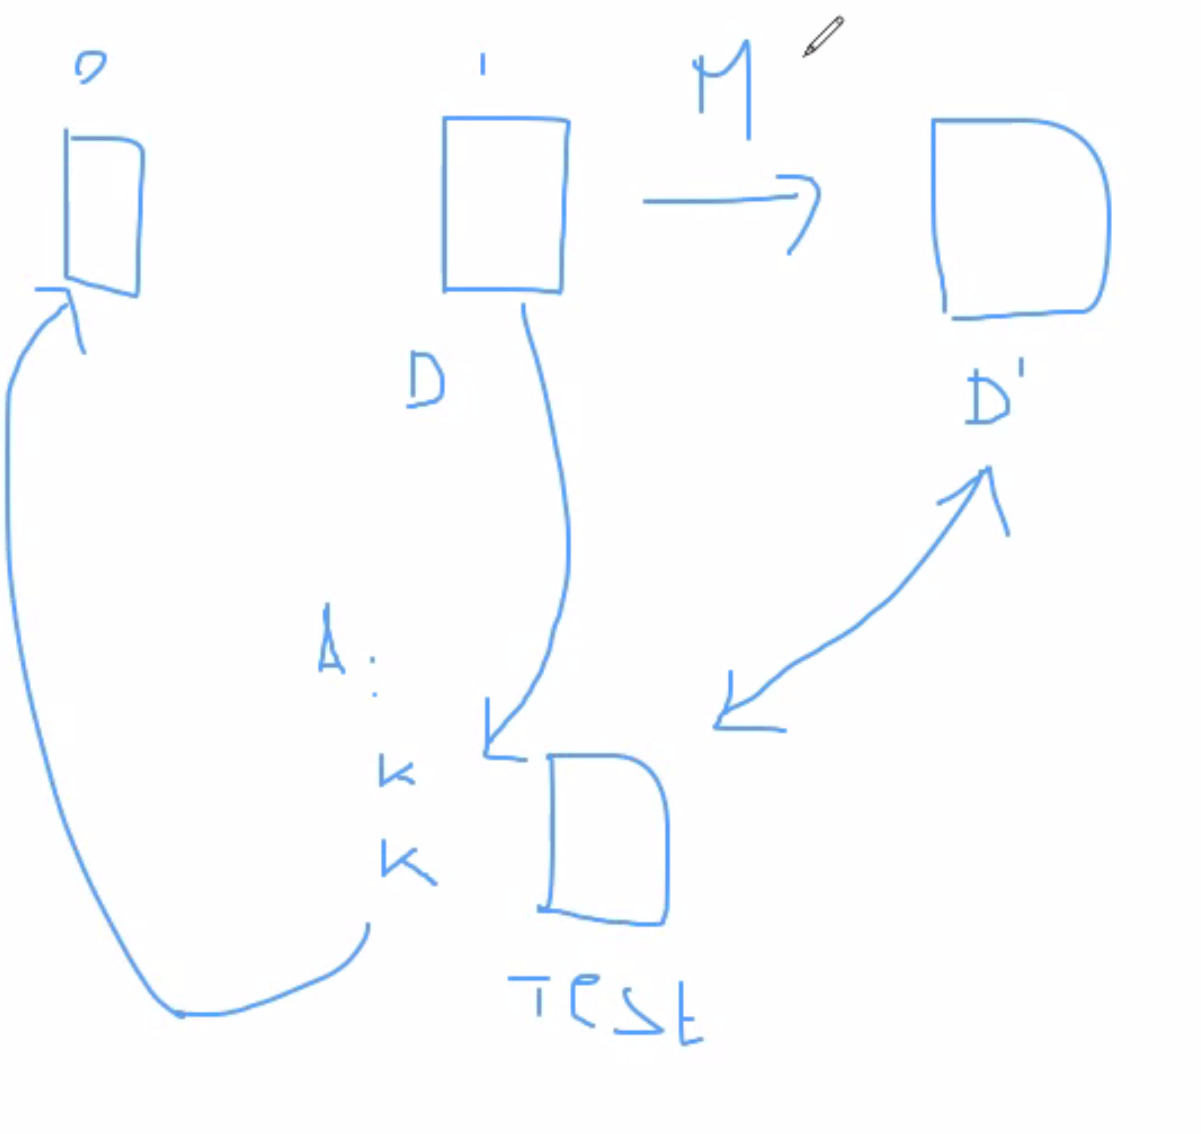 0
1
M
D
D'
A:
K
K
Test